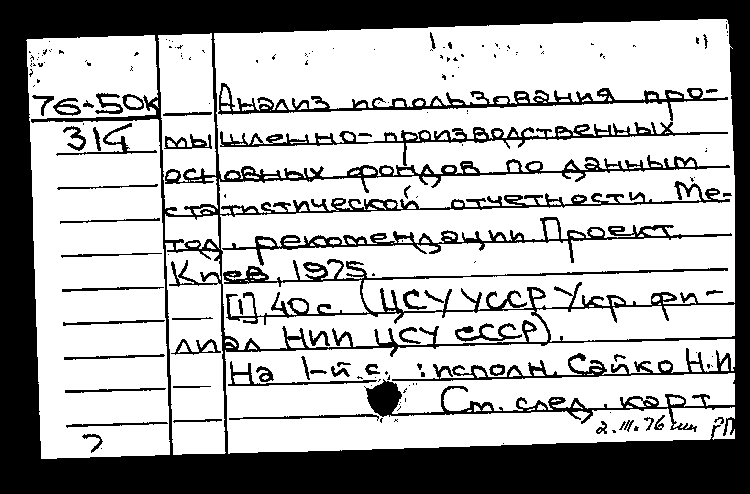 76-50к Анализ использования про-
314 мышленно-производственных
основных фондов по данным
статистической отчетности. Ме-
тод. рекомендации. Проект.
Киев, 1975.
[1], 40 с. (ЦСУ УССР. Укр. фи-
лиал НИИ ЦСУ СССР).
На 1-й с. : исполн. Сайко Н.И.
См. след. карт.
2.III.76 РП